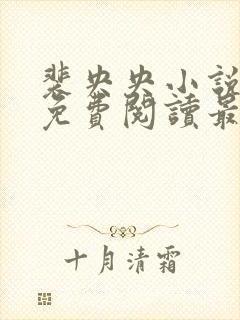 裴央央小說
免費閱讀最
十月清霜